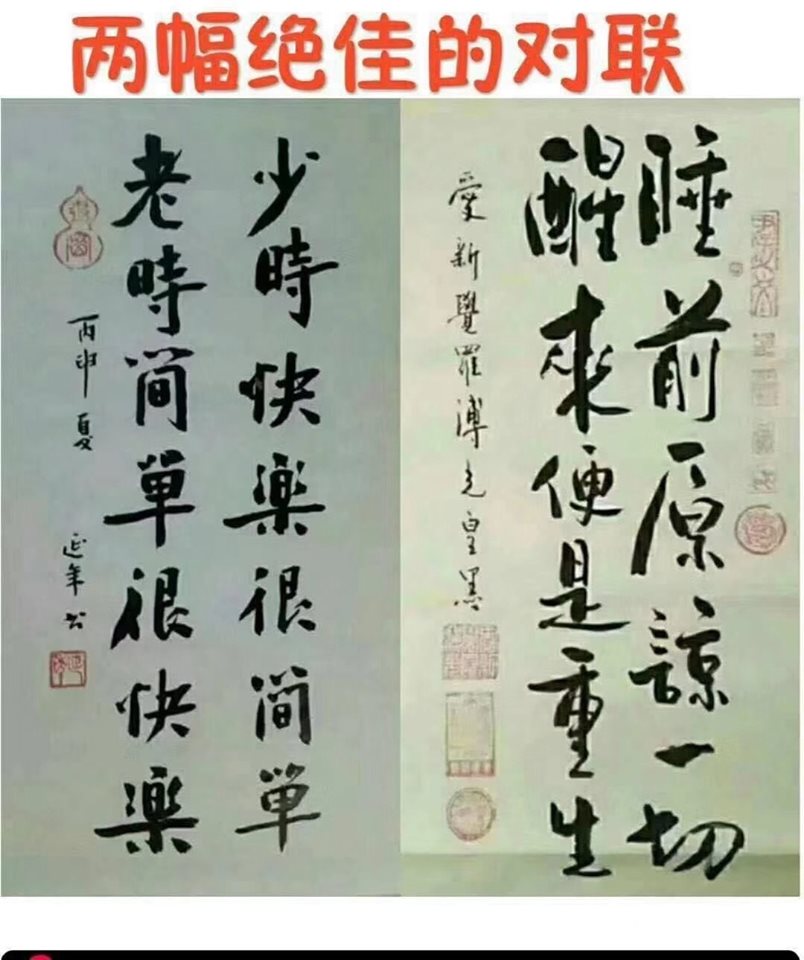 两幅绝佳的对联
少時快樂很简單
老時简單很快樂
丙申夏
延年书
睡前原諒一切
醒來便是重生
愛新覺羅溥